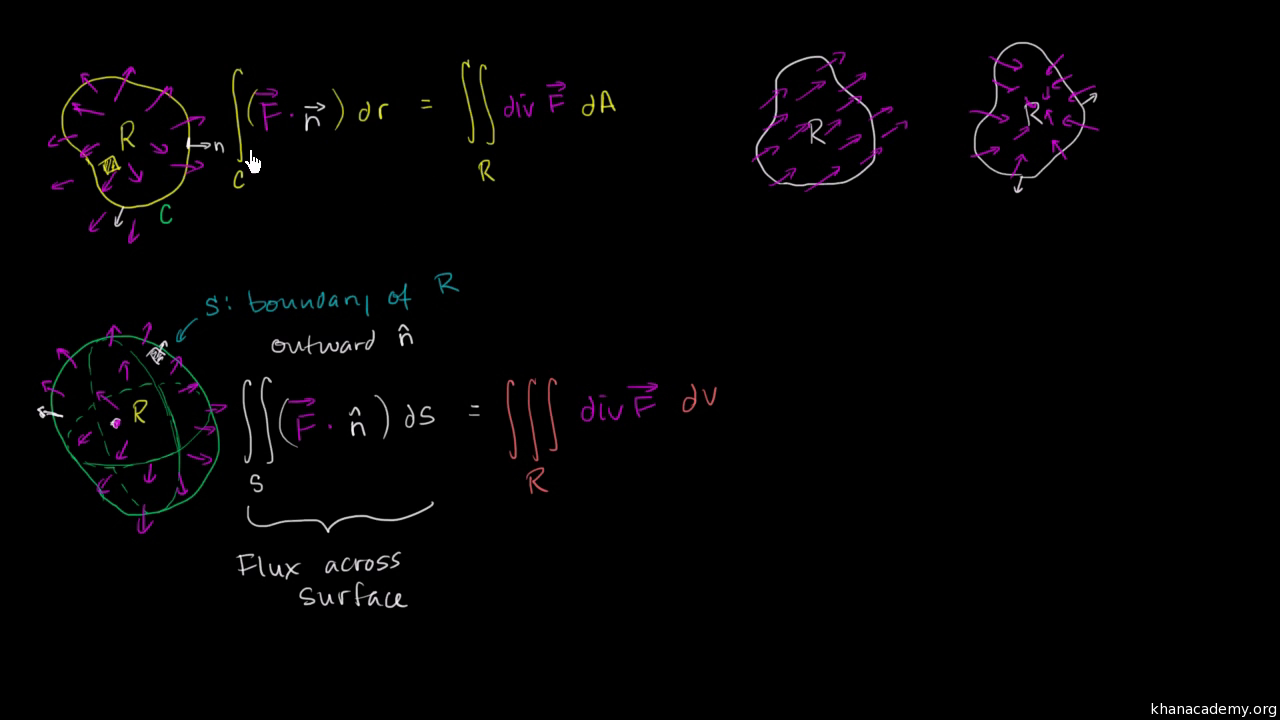 R
n
C
∫ (F⃗ · n⃗) dr = ∬ div F⃗ dA
C
R
R
R
S: boundary of R
outward n̂
R
∬ (F⃗ · n̂) dS = ∭ div F⃗ dV
S
R
Flux across
surface
khanacademy.org